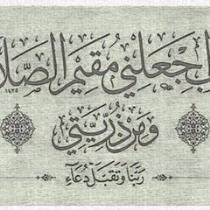 اجعلني مقيم الصلا
ومن ذريتي
ربنا وتقبل دعاء